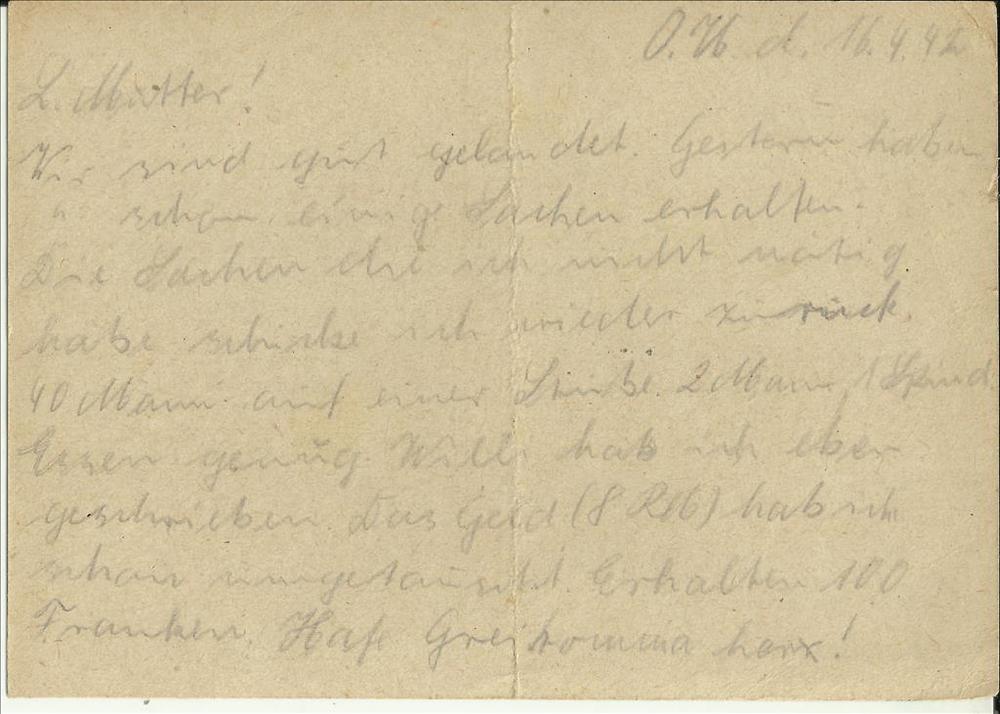 O.U. d. 16.4.42
L. Mutter!
Wir sind gut gelandet. Gestern haben
" schon einige Sachen erhalten.
Die Sachen die ich nicht nötig
habe schicke ich wieder zurück.
40 Mann auf einer Stube. 2 Mann 1 Spind
Essen genug. Willi hab ich eben
geschrieben. Das Geld (8 RM) hab ich
schon umgetauscht. Erhalten 100
Franken.